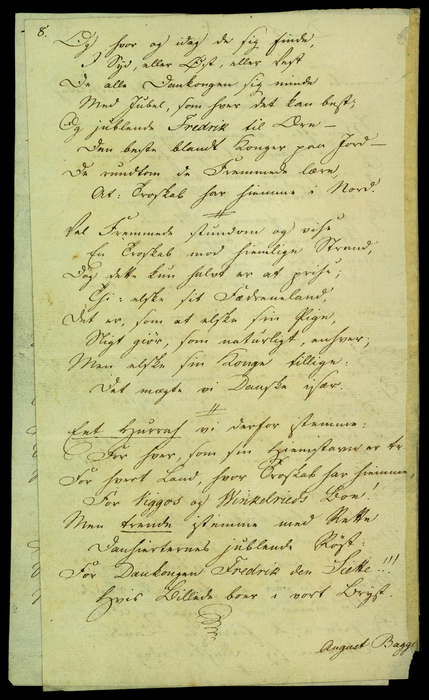 8.
Og hvor og idag de sig finde,
I Syd, eller Øst, eller Vest
De alle Dankongen sig minde
Med Jubel, som hver det kan best;
Og jublende Fredrik til Ære —
Den beste blandt Konger paa Jord —
De rundtom de Fremmede lære,
At: Troskab har hiemme i Nord.
Vel Fremmede stundom og vise
En Troskab mod hiemlige Strand,
Dog dette kun halvt er at prise;
Thi: elske sit Fædreneland,
Det er, som at elske sin Pige,
Sligt giør, som naturligt, enhver;
Men elske sin Konge tillige:
Det mægte vi Danske især.
Eet Hurrah vi derfor istemme:
For hver, som sin Hiemstavn er tr
For hvert Land, hvor Troskab har hiemme,
For Viggos og Winkelrieds Boe!
Men trende istemme med Rette
Danhierternes jublende Röst:
For Dankongen Fredrik den Siette!!!
Hvis Billede boer i vort Bryst.
August Bagge